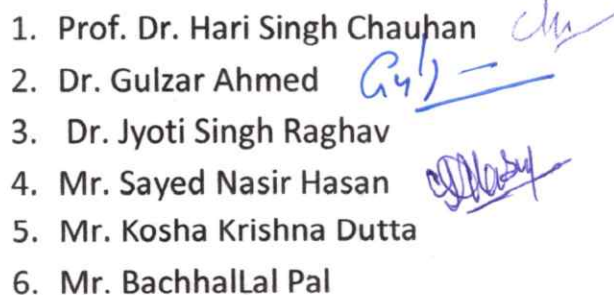 1. Prof. Dr. Hari Singh Chauhan
2. Dr. Gulzar Ahmed
3. Dr. Jyoti Singh Raghav
4. Mr. Sayed Nasir Hasan
5. Mr. Kosha Krishna Dutta
6. Mr. BachhalLal Pal